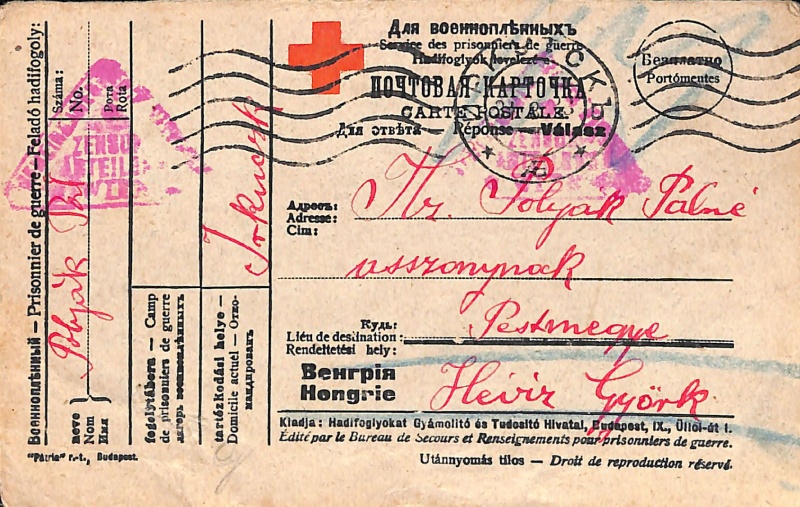 Для военноплѣнныхъ
Service des prisonniers de guerre
Hadifoglyok levelezé
ПОЧТОВАЯ КАРТОЧКА
CARTE POSTALE
Для отвѣта — Réponse — Válasz
Безплатно
Portómentes
Военноплѣнный — Prisonnier de guerre — Feladó hadifogoly:
Száma:
No.
Рота
Rota
Polyák Pál
neve
Nom
Имя
fogolytábora — Camp
de prisonniers de guerre
лагерь военноплѣнныхъ
Irkuczk
tartózkodási helye —
Domicile actuel — Отко-
мандированъ
Адресъ:
Adresse:
Cim:
Polyák Pálné
asszonynak
Куды:
Lieu de destination:
Rendeltetési hely:
Pestmegye
Венгрія
Hongrie
Hévíz Györk
Kiadja: Hadifoglyokat Gyámolitó és Tudositó Hivatal, Budapest, IX., Üllői-út 1.
Édité par le Bureau de Secours et Renseignements pour prisonniers de guerre.
"Pátria" r.-t., Budapest.
Utánnyomás tilos — Droit de reproduction réservé.
ZENSUR
ABTEILU
WIEN